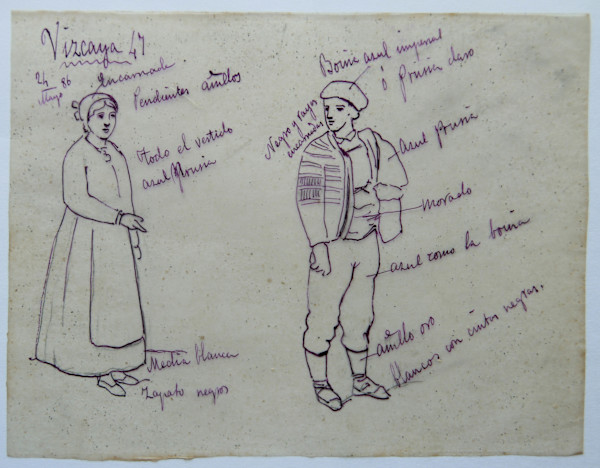 Vizcaya 47
24
Mayo 86
Encarnado
Pendientes anillos
todo el vestido
azul prusia
Media blanca
Zapato negros
Boina azul imperial
ó prusia claro
Negro y rayas
encarnadas
azul prusia
morado
azul como la boina
anillo oro
blancos con cintas negras.